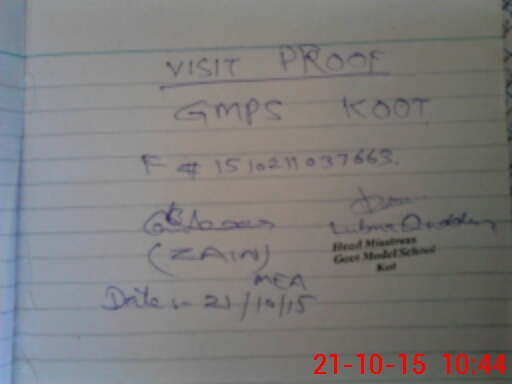 VISIT PROOF
GMPS KOOT
F # 1510211037663.
(ZAIN)
MEA
Date:- 21/10/15
Lubna
Head Misstress
Govt Model School
Kot
21-10-15 10:44